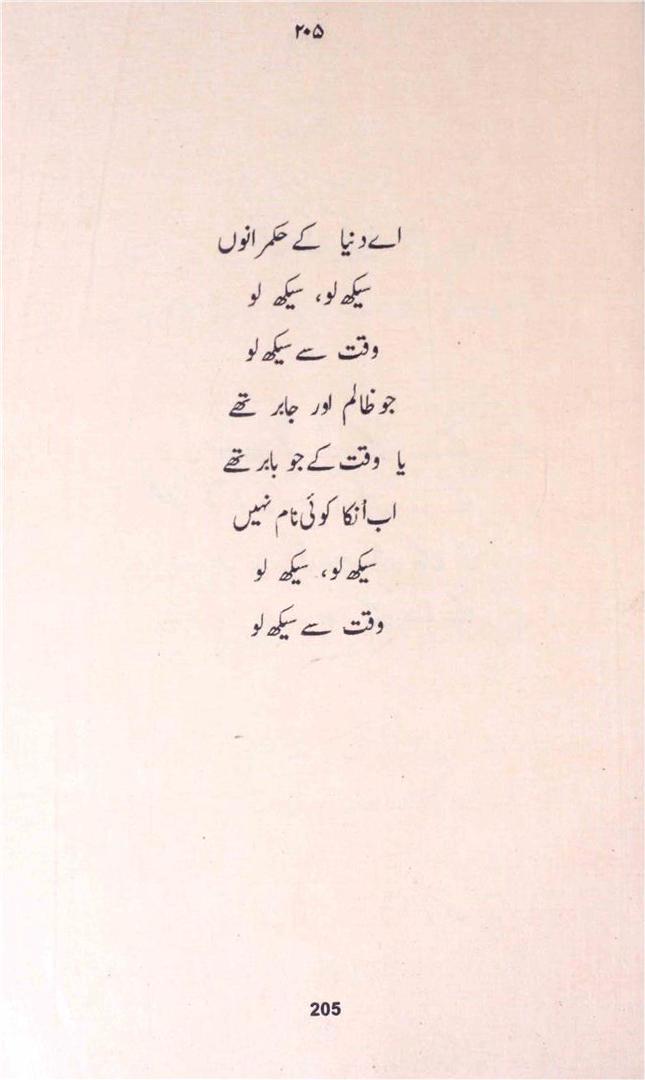 ۲۰۵
اے دنیا کے حکمرانوں
سیکھ لو، سیکھ لو
وقت سے سیکھ لو
جو ظالم اور جابر تھے
یا وقت کے جو بابر تھے
اب اُنکا کوئی نام نہیں
سیکھ لو، سیکھ لو
وقت سے سیکھ لو
205